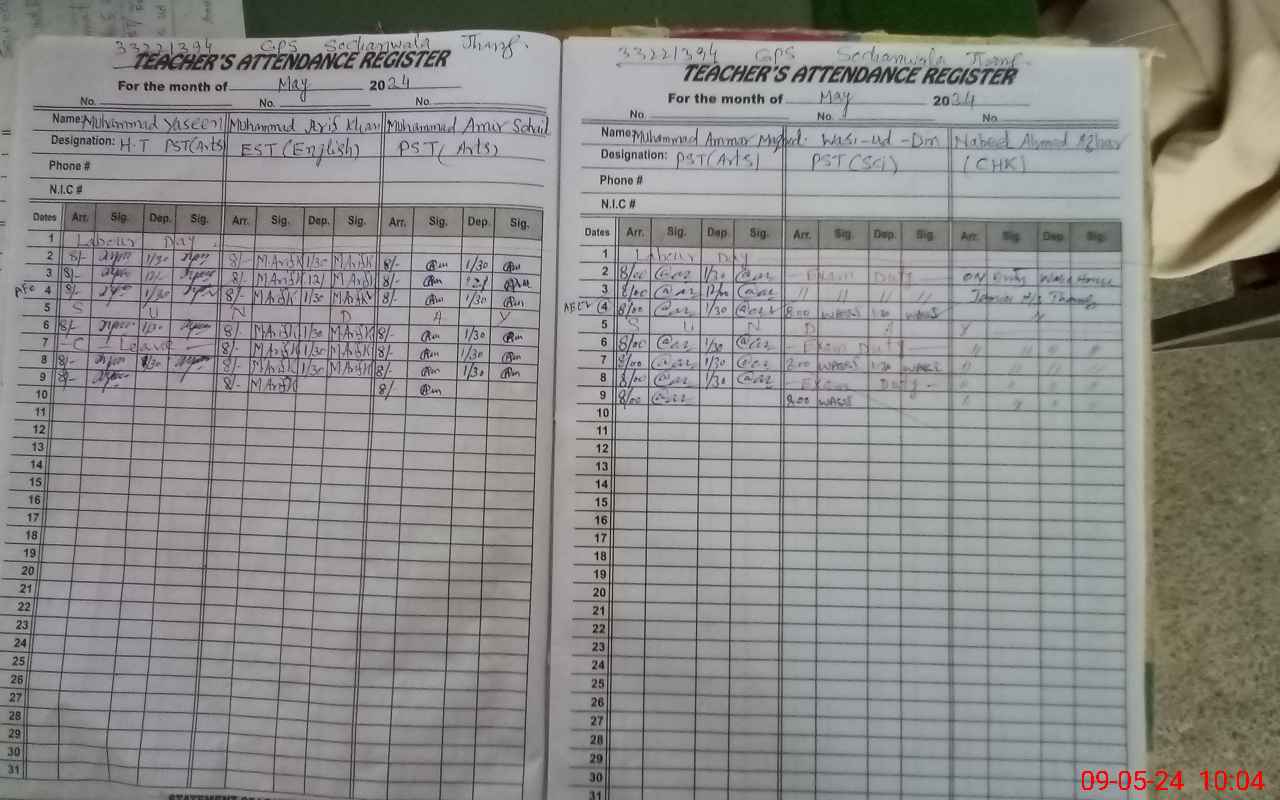 33221394 GPS Sochanwala Jhang.
TEACHER'S ATTENDANCE REGISTER
For the month of May 2024
No. No. No.
Name: Muhammad Yaseen Muhammad Arif Khan Muhammad Amir Sohail
Designation: H.T PST(Arts) EST (English) PST (Arts)
Phone #
N.I.C #
Dates Arr. Sig. Dep. Sig. Arr. Sig. Dep. Sig. Arr. Sig. Dep. Sig.
1 Labour Day
2 8/- 1/30 8/- M Arif K 1/30 M Arif K 8/- 1/30
3 8/- 12/- 8/- M Arif K 12/ M Arif K 8/-
4 8/- 1/30 8/- M Arif K 1/30 M Arif K 8/- 1/30
5 S U N D A Y
6 8/- 1/30 8/- M Arif K 1/30 M Arif K 8/- 1/30
7 C - Leave 8/- M Arif K 1/30 M Arif K 8/- 1/30
8 8/- 1/30 8/- M Arif K 1/30 M Arif K 8/- 1/30
9 8/- 8/- M Arif K 8/-
10
11
12
13
14
15
16
17
18
19
20
21
22
23
24
25
26
27
28
29
30
31
33221394 GPS Sochanwala Jhang.
TEACHER'S ATTENDANCE REGISTER
For the month of May 2024
No. No. No.
Name: Muhammad Ammar Wasi-ud-Din Nabeed Ahmed Azhar
Designation: PST(Arts) PST(Sci) (CHK)
Phone #
N.I.C #
Dates Arr. Sig. Dep. Sig. Arr. Sig. Dep. Sig. Arr. Sig. Dep. Sig.
1 Labour Day
2 8/00 1/30 - Exam Duty - ON Duty Ware House
3 8/00 12/00 " " " "
4 8/00 1/30 8:00 WASI 1:30 WASI "
5 S U N D A Y
6 8/00 1/30 - Exam Duty - " " " "
7 8/00 1/30 8:00 WASI 1:30 WASI " " " "
8 8/00 1/30 - Exam Duty - " " " "
9 8/00 8:00 WASI " " " "
10
11
12
13
14
15
16
17
18
19
20
21
22
23
24
25
26
27
28
29
30
31
09-05-24 10:04